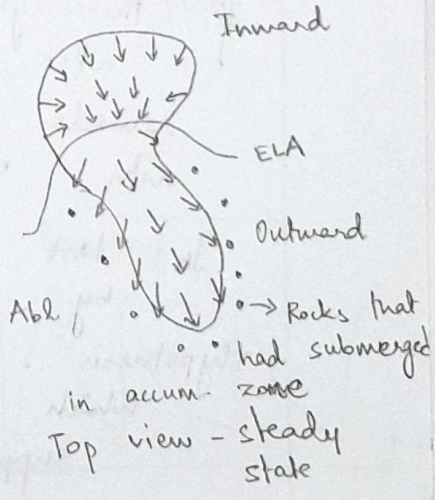 Inward
ELA
Outward
Abl
→ Rocks that
had submerged
in accum. zone
Top view - steady
state